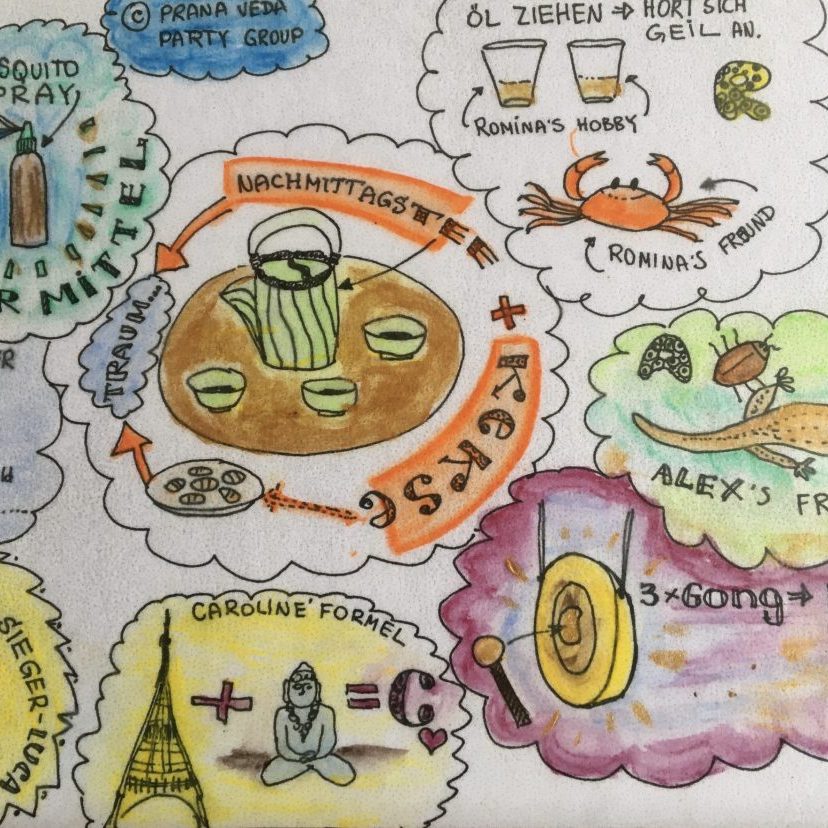 © PRANA VEDA
PARTY GROUP
ÖL ZIEHEN ⇒ HÖRT SICH
GEIL AN.
ROMINA'S HOBBY
R
ROMINA'S FREUND
SQUITO
PRAY
R MITTEL
NACHMITTAGSTEE
+
KEKSE
TRAUM...
A
ALEX'S FR
3×Gong⇒
SIEGER-LUCA
CAROLINE' FORMEL
+ =
C